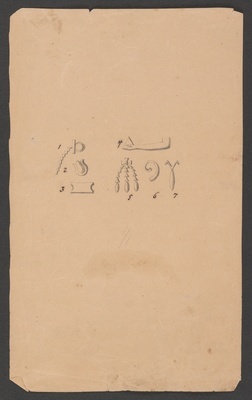 1 4
2
3
5 6 7